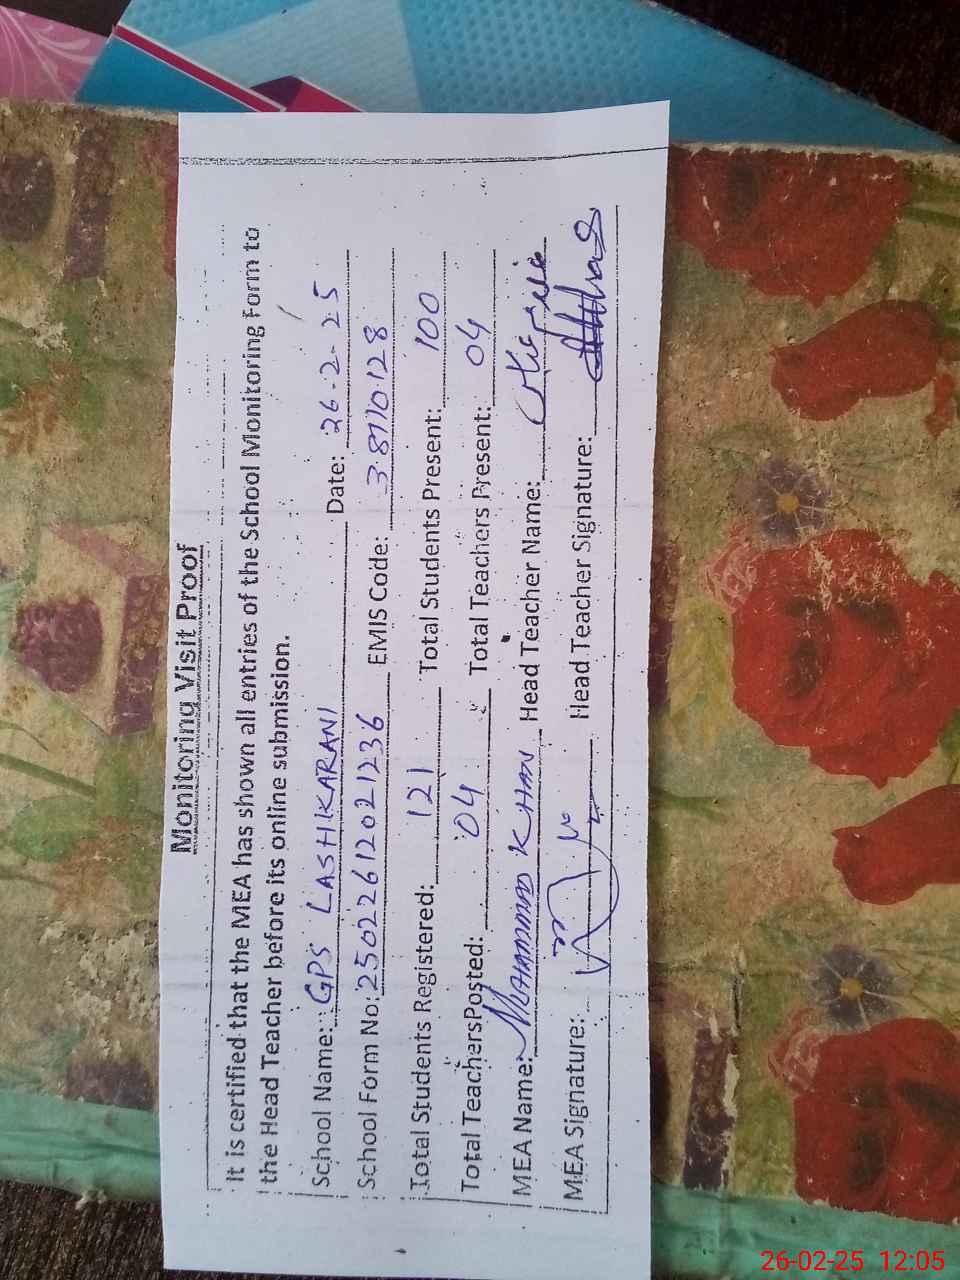 Monitoring Visit Proof
It is certified that the MEA has shown all entries of the School Monitoring Form to
the Head Teacher before its online submission.
School Name: GPS LASHKARANI Date: 26-2-25
School Form No: 25022612021236 EMIS Code: 38110128
Total Students Registered: 121 Total Students Present: 100
Total TeachersPosted: 04 Total Teachers Present: 04
MEA Name: MUHAMMAD KHAN Head Teacher Name:
MEA Signature: Head Teacher Signature:
26-02-25 12:05